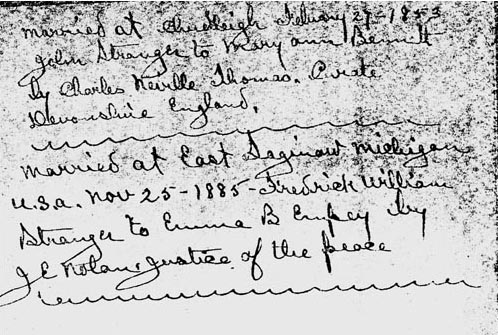 married at Chudleigh February 27-1853
John Stranger to Mary ann Bennett
By Charles Neville Thomas. Curate
Devonshire England.
married at East Saginaw Michigan
U.S.a. Nov 25-1885-Fredrick William
Stranger to Emma B Empey by
J E Nolan, Justice of the peace